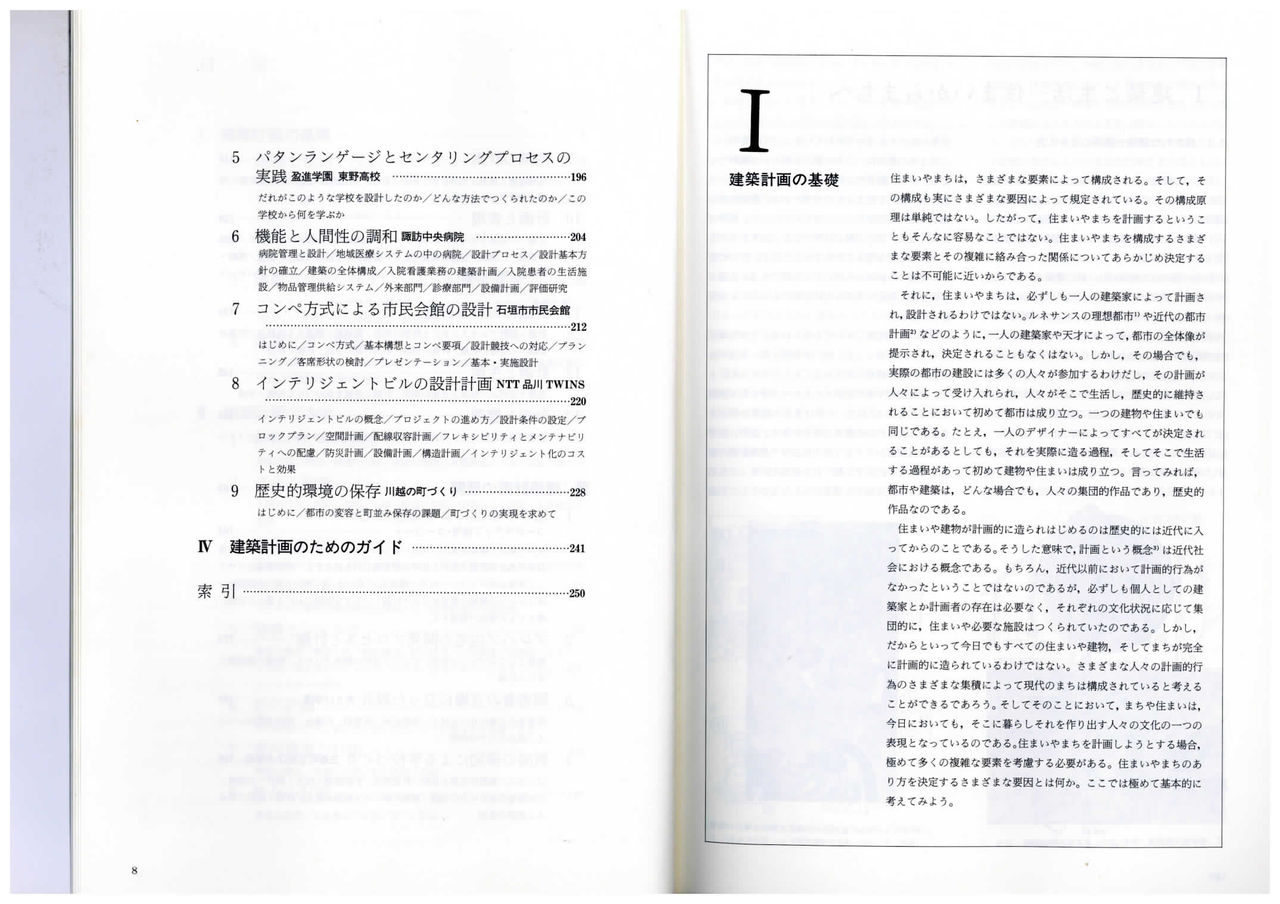 5 パタンランゲージとセンタリングプロセスの
実践 盈進学園 東野高校 ……………………………………196
だれがこのような学校を設計したのか／どんな方法でつくられたのか／この
学校から何を学ぶか
6 機能と人間性の調和 諏訪中央病院 ……………………204
病院管理と設計／地域医療システムの中の病院／設計プロセス／設計基本方
針の確立／建築の全体構成／入院看護業務の建築計画／入院患者の生活施
設／物品管理供給システム／外来部門／診療部門／設備計画／評価研究
7 コンペ方式による市民会館の設計 石垣市市民会館
……………………………………………………………212
はじめに／コンペ方式／基本構想とコンペ要項／設計競技への対応／プラン
ニング／客席形状の検討／プレゼンテーション／基本・実施設計
8 インテリジェントビルの設計計画 NTT 品川 TWINS
……………………………………………………………220
インテリジェントビルの概念／プロジェクトの進め方／設計条件の設定／ブ
ロックプラン／空間計画／配線収容計画／フレキシビリティとメンテナビリ
ティへの配慮／防災計画／設備計画／構造計画／インテリジェント化のコス
トと効果
9 歴史的環境の保存 川越の町づくり ……………………228
はじめに／都市の変容と町並み保存の課題／町づくりの実現を求めて
Ⅳ 建築計画のためのガイド ………………………………241
索 引 …………………………………………………………250
8
I
建築計画の基礎
住まいやまちは，さまざまな要素によって構成される。そして，そ
の構成も実にさまざまな要因によって規定されている。その構成原
理は単純ではない。したがって，住まいやまちを計画するというこ
ともそんなに容易なことではない。住まいやまちを構成するさまざ
まな要素とその複雑に絡み合った関係についてあらかじめ決定する
ことは不可能に近いからである。
それに，住まいやまちは，必ずしも一人の建築家によって計画さ
れ，設計されるわけではない。ルネサンスの理想都市¹⁾や近代の都市
計画²⁾などのように，一人の建築家や天才によって，都市の全体像が
提示され，決定されることもなくはない。しかし，その場合でも，
実際の都市の建設には多くの人々が参加するわけだし，その計画が
人々によって受け入れられ，人々がそこで生活し，歴史的に維持さ
れることにおいて初めて都市は成り立つ。一つの建物や住まいでも
同じである。たとえ，一人のデザイナーによってすべてが決定され
ることがあるとしても，それを実際に造る過程，そしてそこで生活
する過程があって初めて建物や住まいは成り立つ。言ってみれば，
都市や建築は，どんな場合でも，人々の集団的作品であり，歴史的
作品なのである。
住まいや建物が計画的に造られはじめるのは歴史的には近代に入
ってからのことである。そうした意味で，計画という概念³⁾は近代社
会における概念である。もちろん，近代以前において計画的行為が
なかったということではないのであるが，必ずしも個人としての建
築家とか計画者の存在は必要なく，それぞれの文化状況に応じて集
団的に，住まいや必要な施設はつくられていたのである。しかし，
だからといって今日でもすべての住まいや建物，そしてまちが完全
に計画的に造られているわけではない。さまざまな人々の計画的行
為のさまざまな集積によって現代のまちは構成されていると考える
ことができるであろう。そしてそのことにおいて，まちや住まいは，
今日においても，そこに暮らしそれを作り出す人々の文化の一つの
表現となっているのである。住まいやまちを計画しようとする場合，
極めて多くの複雑な要素を考慮する必要がある。住まいやまちのあ
り方を決定するさまざまな要因とは何か。ここでは極めて基本的に
考えてみよう。